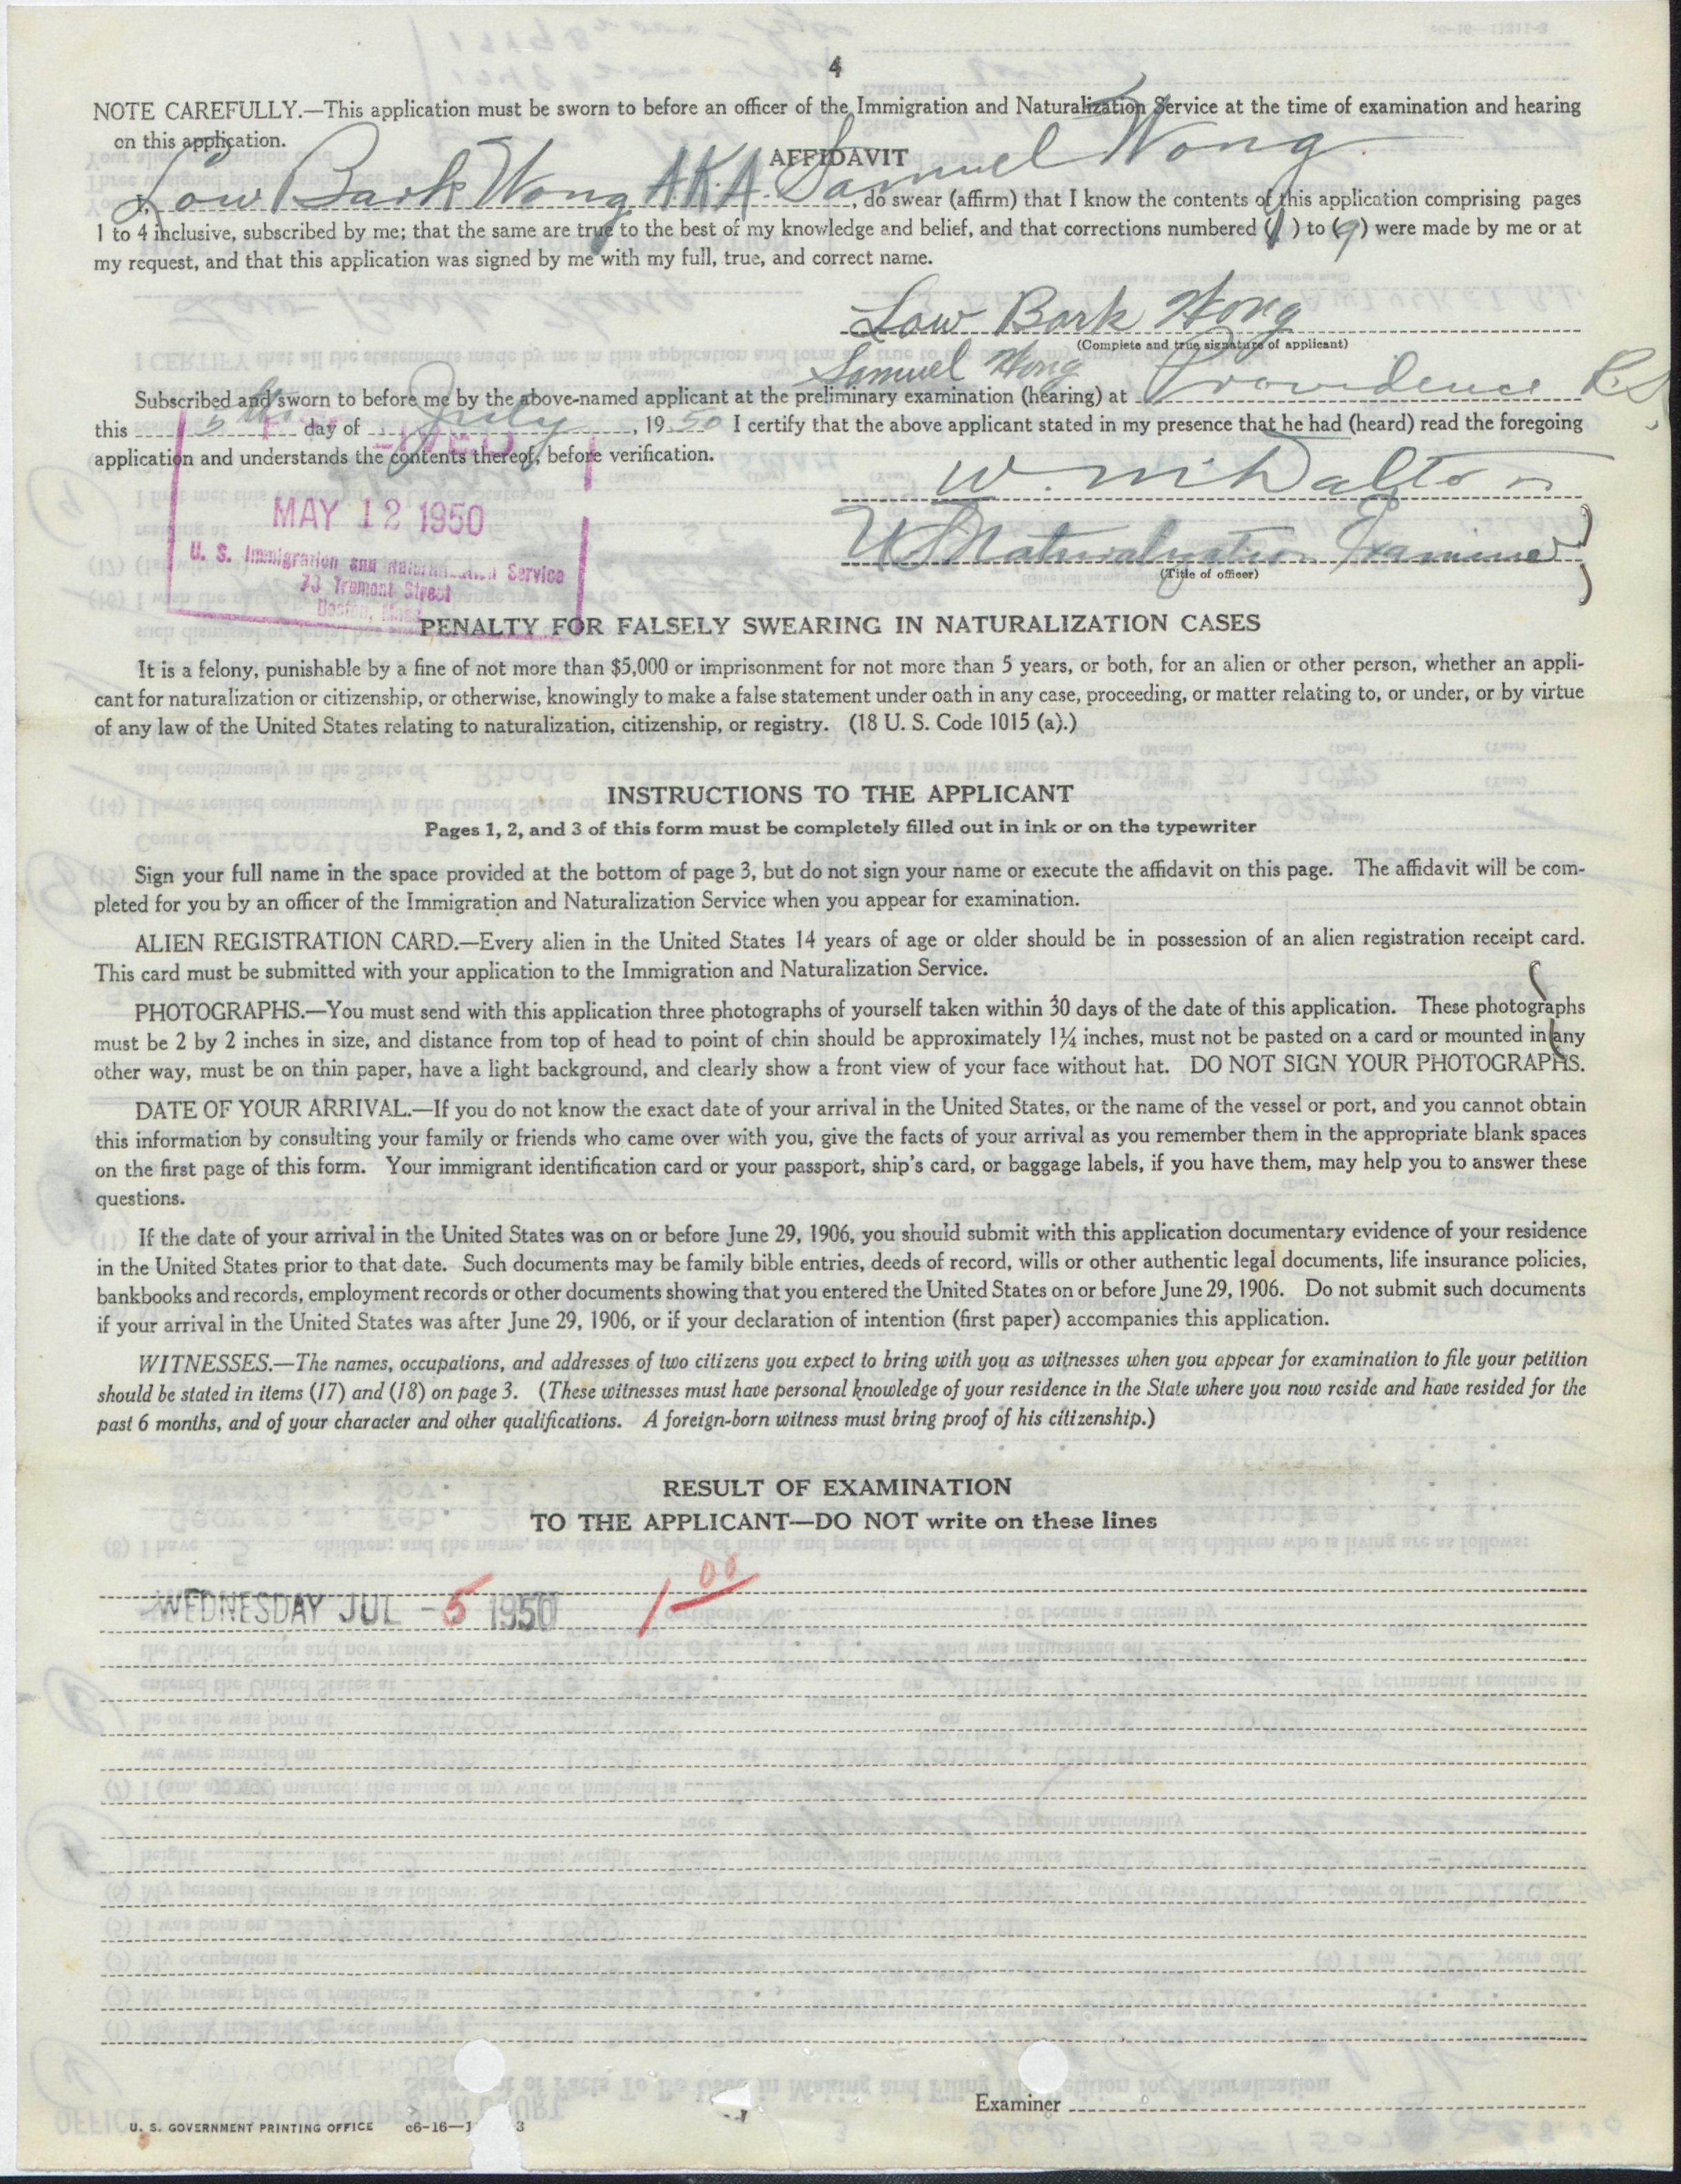 4
NOTE CAREFULLY.—This application must be sworn to before an officer of the Immigration and Naturalization Service at the time of examination and hearing
on this application.
AFFIDAVIT
I, Low Bark Wong AKA Samuel Wong, do swear (affirm) that I know the contents of this application comprising pages
1 to 4 inclusive, subscribed by me; that the same are true to the best of my knowledge and belief, and that corrections numbered (1) to (9) were made by me or at
my request, and that this application was signed by me with my full, true, and correct name.
Low Bark Wong
(Complete and true signature of applicant)
Samuel Wong
Subscribed and sworn to before me by the above-named applicant at the preliminary examination (hearing) at Providence R.I.
this 5th day of July, 1950 I certify that the above applicant stated in my presence that he had (heard) read the foregoing
application and understands the contents thereof, before verification.
W. M. Dalton
MAY 12 1950
US Naturalization Examiner
(Title of officer)
U. S. Immigration and Naturalization Service
73 Tremont Street
Boston, Mass.
PENALTY FOR FALSELY SWEARING IN NATURALIZATION CASES
It is a felony, punishable by a fine of not more than $5,000 or imprisonment for not more than 5 years, or both, for an alien or other person, whether an appli-
cant for naturalization or citizenship, or otherwise, knowingly to make a false statement under oath in any case, proceeding, or matter relating to, or under, or by virtue
of any law of the United States relating to naturalization, citizenship, or registry. (18 U. S. Code 1015 (a).)
INSTRUCTIONS TO THE APPLICANT
Pages 1, 2, and 3 of this form must be completely filled out in ink or on the typewriter
Sign your full name in the space provided at the bottom of page 3, but do not sign your name or execute the affidavit on this page. The affidavit will be com-
pleted for you by an officer of the Immigration and Naturalization Service when you appear for examination.
ALIEN REGISTRATION CARD.—Every alien in the United States 14 years of age or older should be in possession of an alien registration receipt card.
This card must be submitted with your application to the Immigration and Naturalization Service.
PHOTOGRAPHS.—You must send with this application three photographs of yourself taken within 30 days of the date of this application. These photographs
must be 2 by 2 inches in size, and distance from top of head to point of chin should be approximately 1¼ inches, must not be pasted on a card or mounted in any
other way, must be on thin paper, have a light background, and clearly show a front view of your face without hat. DO NOT SIGN YOUR PHOTOGRAPHS.
DATE OF YOUR ARRIVAL.—If you do not know the exact date of your arrival in the United States, or the name of the vessel or port, and you cannot obtain
this information by consulting your family or friends who came over with you, give the facts of your arrival as you remember them in the appropriate blank spaces
on the first page of this form. Your immigrant identification card or your passport, ship's card, or baggage labels, if you have them, may help you to answer these
questions.
If the date of your arrival in the United States was on or before June 29, 1906, you should submit with this application documentary evidence of your residence
in the United States prior to that date. Such documents may be family bible entries, deeds of record, wills or other authentic legal documents, life insurance policies,
bankbooks and records, employment records or other documents showing that you entered the United States on or before June 29, 1906. Do not submit such documents
if your arrival in the United States was after June 29, 1906, or if your declaration of intention (first paper) accompanies this application.
WITNESSES.—The names, occupations, and addresses of two citizens you expect to bring with you as witnesses when you appear for examination to file your petition
should be stated in items (17) and (18) on page 3. (These witnesses must have personal knowledge of your residence in the State where you now reside and have resided for the
past 6 months, and of your character and other qualifications. A foreign-born witness must bring proof of his citizenship.)
RESULT OF EXAMINATION
TO THE APPLICANT—DO NOT write on these lines
WEDNESDAY JUL -5 1950 1 00
Examiner
U. S. GOVERNMENT PRINTING OFFICE c6-16—1 3